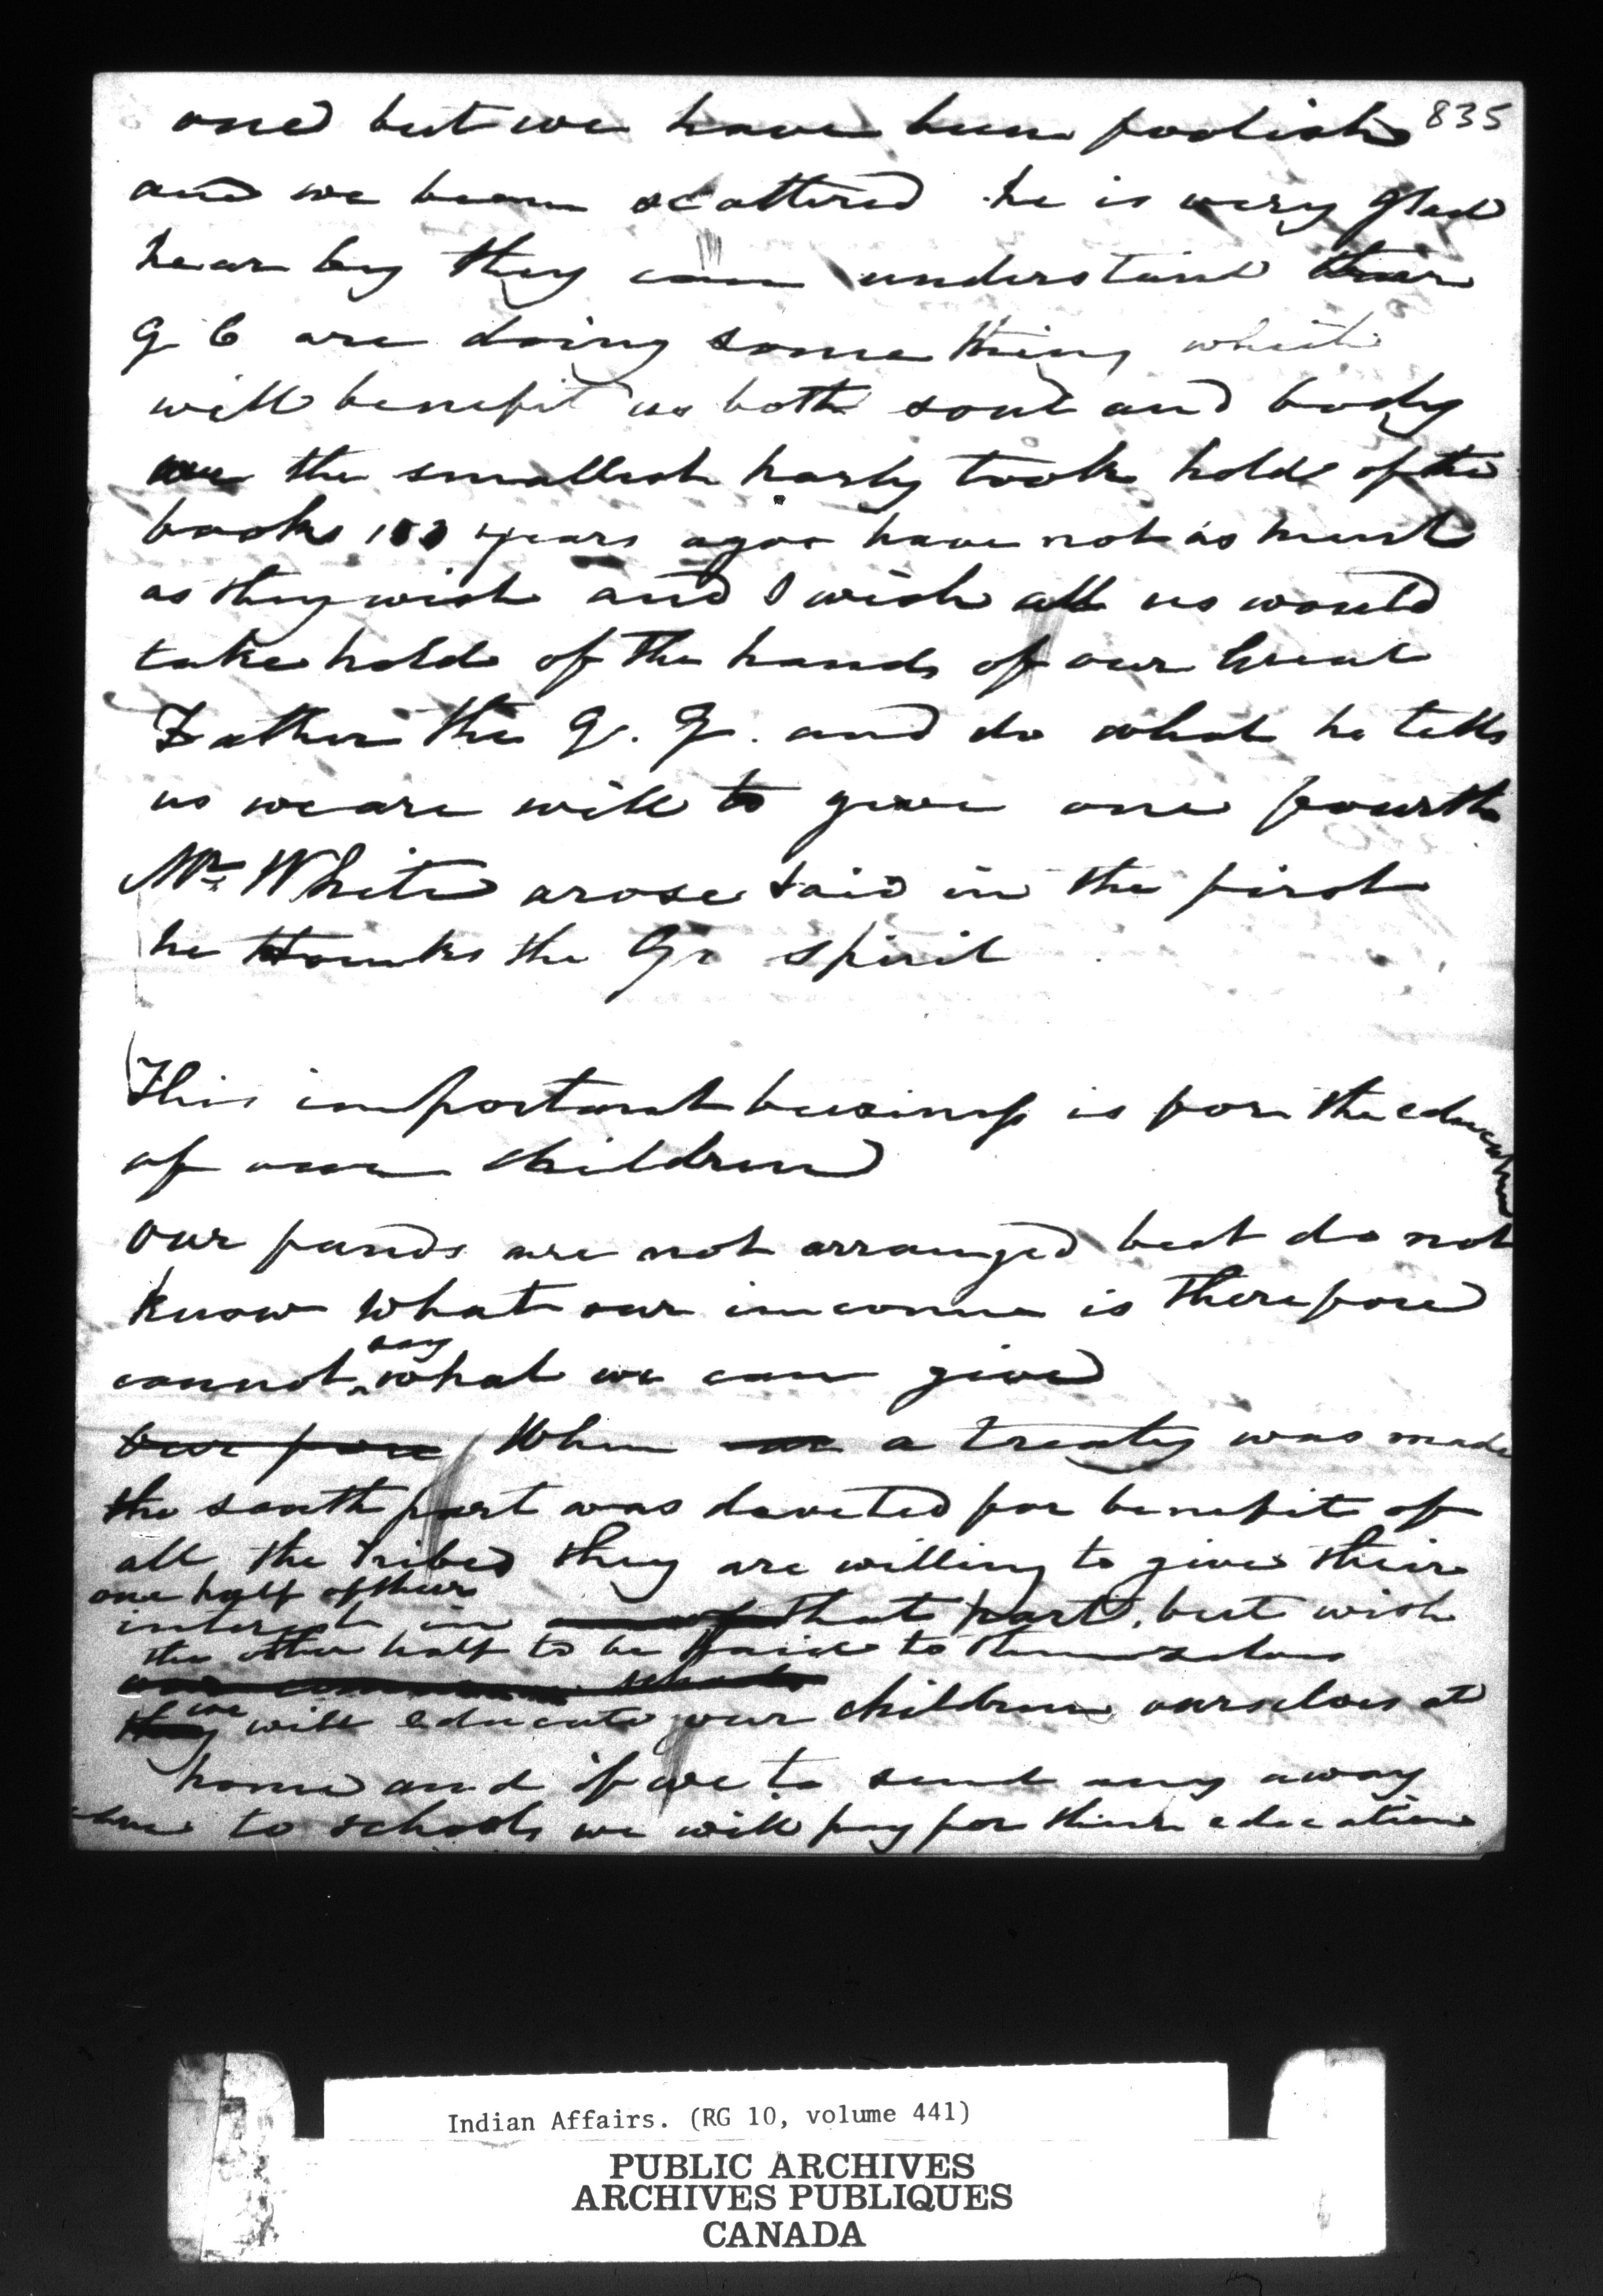 835
one but we have been foolish
and we been scattered he is very glad
hear by they can understand their
G C are doing some thing which
will benefit us both soul and body
the smallest harly took hold of the
books 100 years agoo have not as much
as they wish and I wish all us would
take hold of the hands of our Great
Father the G. G. and do what he tells
us we are will to give one fourth
Mr White arose said in the first
he thanks the Gr spirit
This important business is for the education
of our children
our funds are not arranged but do not
know what our income is therefore
cannot say what we can give
our fore When a treaty was made
the south part was devoted for benefit of
all the Tribes they are willing to give their
one half of their
interest in that part, but wish
the other half to be paid to themselves
they we will educate our children ourselves at
home and if we to send any away
to schools we will pay for their education
Indian Affairs. (RG 10, volume 441)
PUBLIC ARCHIVES
ARCHIVES PUBLIQUES
CANADA